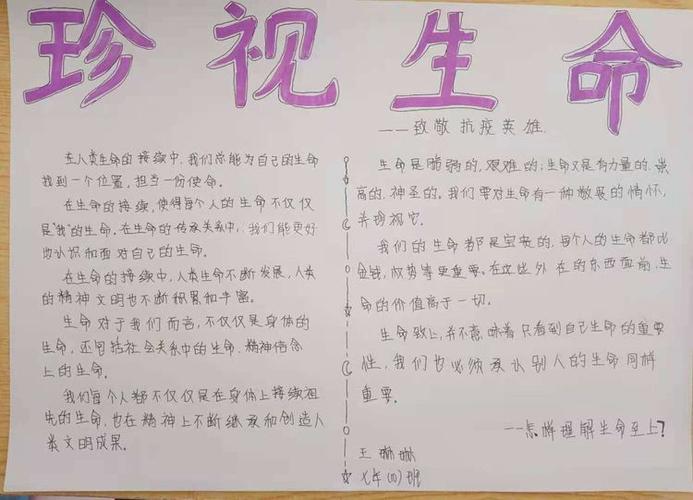 珍视生命
——致敬抗疫英雄
在人类生命的接续中,我们总能为自己的生命
找到一个位置,担当一份使命。
在生命的接续,使得每个人的生命不仅仅
是"我"的生命。在生命的传承关系中,我们能更好
地认识和面对自己的生命。
在生命的接续中,人类生命不断发展,人类
的精神文明也不断积累和丰富。
生命对于我们而言,不仅仅是身体的
生命,还包括社会关系中的生命、精神信念
上的生命。
我们每个人都不仅仅是在身体上接续祖
先的生命,也在精神上不断继承和创造人
类文明成果。
生命是脆弱的,艰难的;生命又是有力量的、崇
高的、神圣的。我们要对生命有一种敬畏的情怀,
并珍视它。
我们的生命都是宝贵的,每个人的生命都比
金钱,权势等更重要。在这些外在的东西面前,生
命的价值高于一切。
生命至上,并不意味着只看到自己生命的重要
性,我们也必须承认别人的生命同样
重要。
——怎样理解生命至上?
王琳琳
七年(11)班